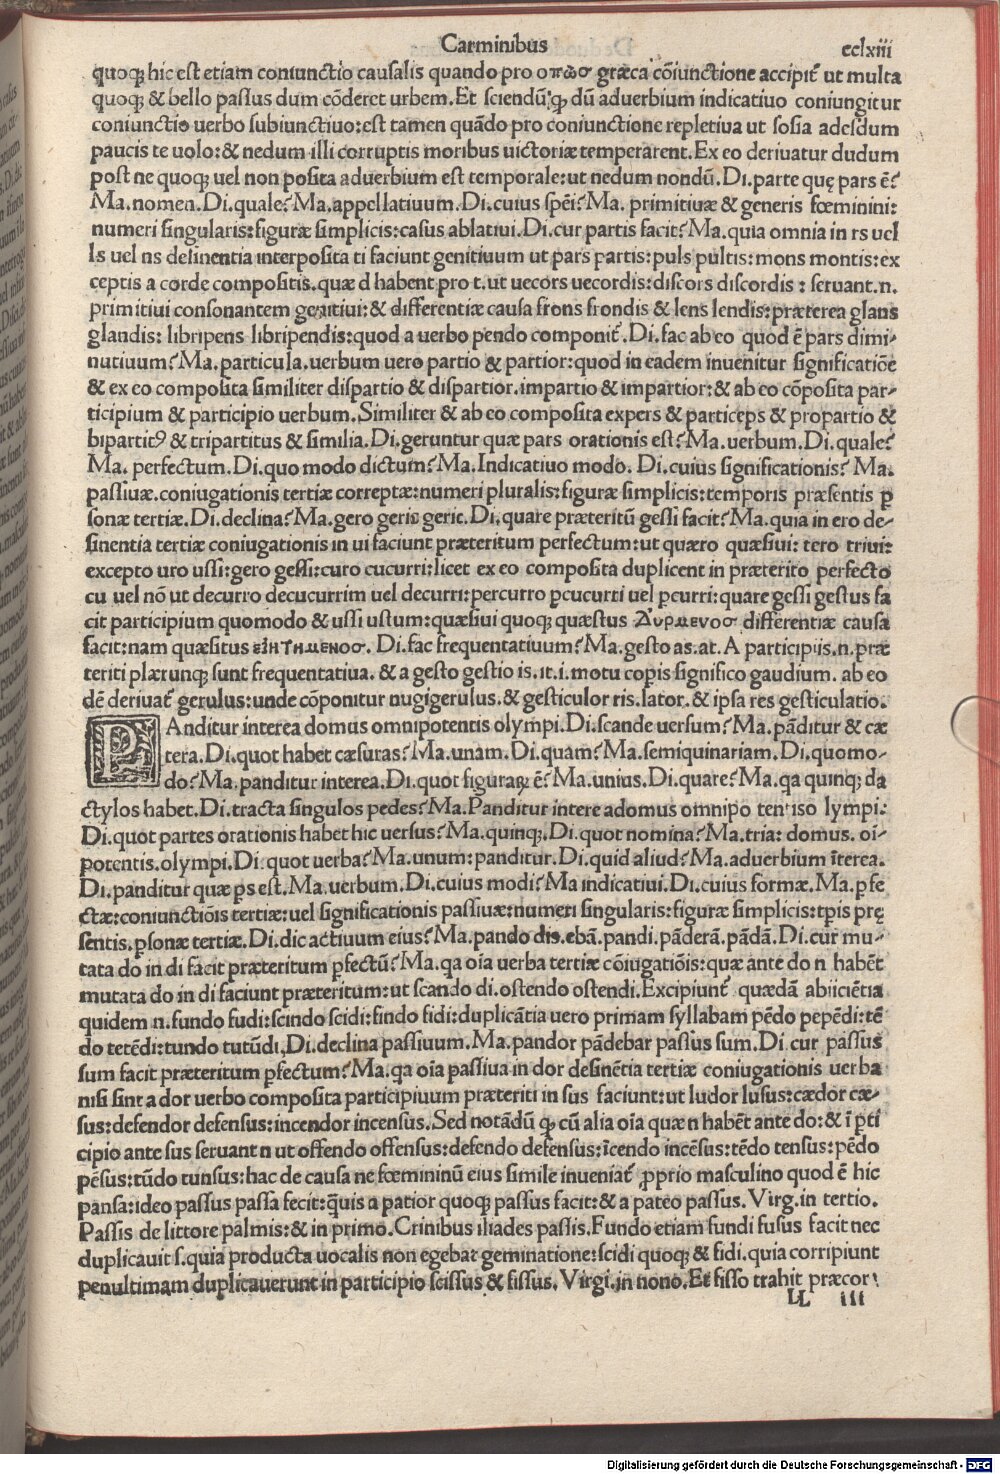 Carminibus
cclxiii
quoqꝫ hic est etiam coniunctio causalis quando pro οπωσ græca cōiunctione accipit᷑ ut multa
quoqꝫ & bello passus dum cōderet urbem. Et sciendū ꝙ dū aduerbium indicatiuo coniungitur
coniunctio uerbo subiunctiuo: est tamen quādo pro coniunctione repletiua ut sosia adesdum
paucis te uolo: & nedum illi corruptis moribus uictoriæ temperarent. Ex eo deriuatur dudum
post ne quoqꝫ uel non posita aduerbium est temporale: ut nedum nondū. Di. parte quę pars ē?
Ma. nomen. Di. quale? Ma. appellatiuum. Di. cuius spēi? Ma. primitiuæ & generis fœminini:
numeri singularis: figuræ simplicis: casus ablatiui. Di. cur partis facit? Ma. quia omnia in rs uel
ls uel ns desinentia interposita ti faciunt genitiuum ut pars partis: puls pultis: mons montis: ex
ceptis a corde compositis. quæ d habent pro t. ut uecors uecordis: discors discordis: seruant. n.
primitiui consonantem genitiui: & differentiæ causa frons frondis & lens lendis: præterea glans
glandis: libripens libripendis: quod a uerbo pendo componit᷑. Di. fac ab eo quod ē pars dimi-
nutiuum? Ma. particula. uerbum uero partio & partior: quod in eadem inuenitur significatiōe
& ex eo composita similiter dispartio & dispartior. impartio & impartior: & ab eo cōposita par-
ticipium & participio uerbum. Similiter & ab eo composita expers & particeps & propartio &
bipartitꝰ & tripartitus & similia. Di. geruntur quæ pars orationis est? Ma. uerbum. Di. quale?
Ma. perfectum. Di. quo modo dictum? Ma. Indicatiuo modo. Di. cuius significationis? Ma.
passiuæ. coniugationis tertiæ correptæ: numeri pluralis: figuræ simplicis: temporis præsentis ꝑ
sonæ tertiæ. Di. declina? Ma. gero geris gerit. Di. quare præteritū gessi facit? Ma. quia in ero de-
sinentia tertiæ coniugationis in ui faciunt præteritum perfectum: ut quæro quæsiui: tero triui:
excepto uro ussi: gero gessi: curo cucurri: licet ex eo composita duplicent in præterito perfecto
cu uel nō ut decurro decucurrim uel decurri: percurro ꝑcucurri uel ꝑcurri: quare gessi gestus fa
cit participium quomodo & ussi ustum: quæsiui quoqꝫ quæstus differentiæ causa
facit: nam quæsitus . Di. fac frequentatiuum? Ma. gesto as. at. A participiis. n. præ
teriti plærunqꝫ sunt frequentatiua. & a gesto gestio is. it. i. motu copis significo gaudium. ab eo
dē deriuat᷑ gerulus: unde cōponitur nugigerulus. & gesticulor ris. lator. & ipsa res gesticulatio.
PAnditur interea domus omnipotentis olympi. Di. scande uersum? Ma. pāditur & cæ
tera. Di. quot habet cæsuras? Ma. unam. Di. quam? Ma. semiquinariam. Di. quomo-
do? Ma. panditur interea. Di. quot figuraꝝ ē? Ma. unius. Di. quare? Ma. qa quinqꝫ da
ctylos habet. Di. tracta singulos pedes? Ma. Panditur intere adomus omnipo tentiso lympi:
Di. quot partes orationis habet hic uersus? Ma. quinqꝫ. Di. quot nomina? Ma. tria: domus. oi-
potentis. olympi. Di. quot uerba? Ma. unum: panditur. Di. quid aliud? Ma. aduerbium īterea.
Di. panditur quæ ps est. Ma. uerbum. Di. cuius modi? Ma indicatiui. Di. cuius formæ. Ma. ꝑfe
ctæ: coniunctiōis tertiæ: uel significationis passiuæ: numeri singularis: figuræ simplicis: tꝑis prę
sentis. ꝑsonæ tertiæ. Di. dic actiuum eius? Ma. pando dis. ebā. pandi. pāderā. pādā. Di. cur mu-
tata do in di facit præteritum ꝑfectū? Ma. qa oīa uerba tertiæ cōiugatiōis: quæ ante do n habēt
mutata do in di faciunt præteritum: ut scando di. ostendo ostendi. Excipiunt᷑ quædā abiiciētia
quidem n. fundo fudi: scindo scidi: findo fidi: duplicātia uero primam syllabam pēdo pepēdi: tē
do tetēdi: tundo tutūdi. Di. declina passiuum. Ma. pandor pādebar passus sum. Di cur passus
sum facit præteritum ꝑfectum? Ma. qa oīa passiua in dor desinētia tertiæ coniugationis uerba
nisi sint a dor uerbo composita participiuum præteriti in sus faciunt: ut ludor lusus: cædor cæ-
sus: defendor defensus: incendor incensus. Sed notādū ꝙ cū alia oīa quæ n habēt ante do: & ī ꝑti
cipio ante sus seruant n ut offendo offensus: defendo defensus: īcendo incēsus: tēdo tensus: pēdo
pēsus: tūdo tunsus: hac de causa ne fœmininū eius simile inueniat᷑ ꝓprio masculino quod ē hic
pansa: ideo passus passa fecit: quis a patior quoqꝫ passus facit: & a pateo passus. Virg. in tertio.
Passis de littore palmis: & in primo. Crinibus iliades passis. Fundo etiam fundi fusus facit nec
duplicauit s. quia producta uocalis non egebat geminatione: scidi quoqꝫ & fidi. quia corripiunt
penultimam duplicauerunt in participio scissus & fissus. Virgi. in nono. Et fisso trahit præcor
LL iii
Digitalisierung gefördert durch die Deutsche Forschungsgemeinschaft - DFG